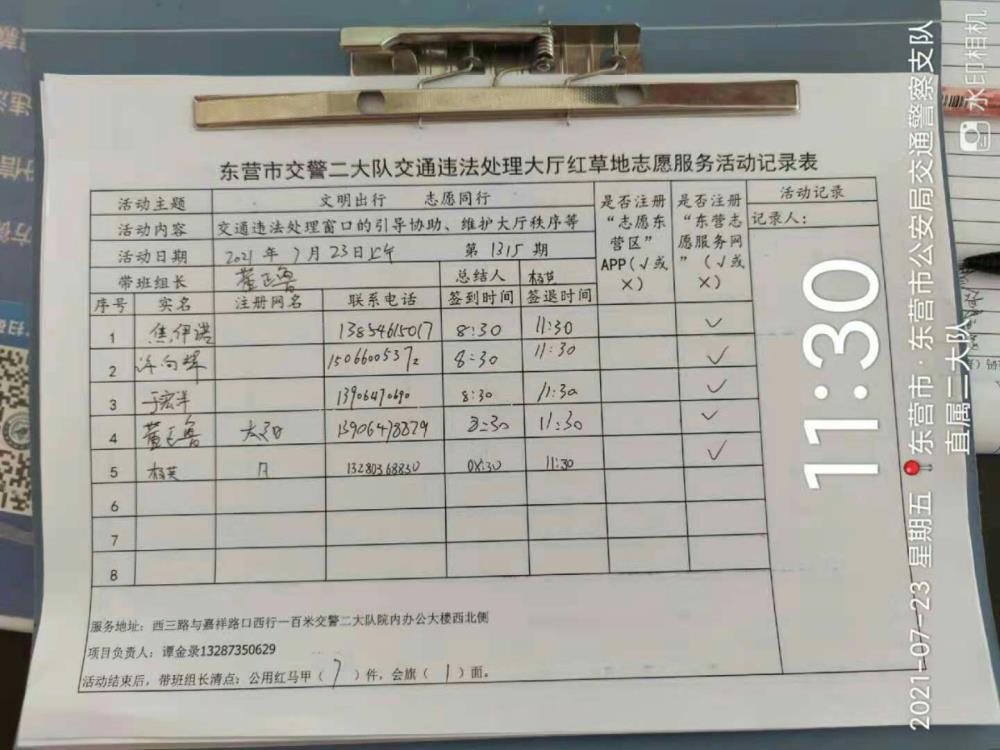 东营市交警二大队交通违法处理大厅红草地志愿服务活动记录表
活动主题 文明出行 志愿同行 是否注册“志愿东营区”APP(√或×) 是否注册“东营志愿服务网”(√或×) 活动记录
活动内容 交通违法处理窗口的引导协助、维护大厅秩序等 记录人：
活动日期 2021年7月23日上午 第1315期
带班组长 董正鲁 总结人 杨英
序号 实名 注册网名 联系电话 签到时间 签退时间
1 焦伊诺 13854615017 8:30 11:30 ✓
2 许向辉 15066005372 8:30 11:30 ✓
3 于宏洋 13906470690 8:30 11:30 ✓
4 董正鲁 13906478879 8:30 11:30 ✓
5 杨英 月 13280368830 08:30 11:30 ✓
6
7
8
服务地址：西三路与嘉祥路口西行一百米交警二大队院内办公大楼西北侧
项目负责人：谭金录13287350629
活动结束后，带班组长清点：公用红马甲（7）件，会旗（1）面。
11:30
2021-07-23 星期五
东营市·东营市公安局交通警察支队
直属二大队
水印相机